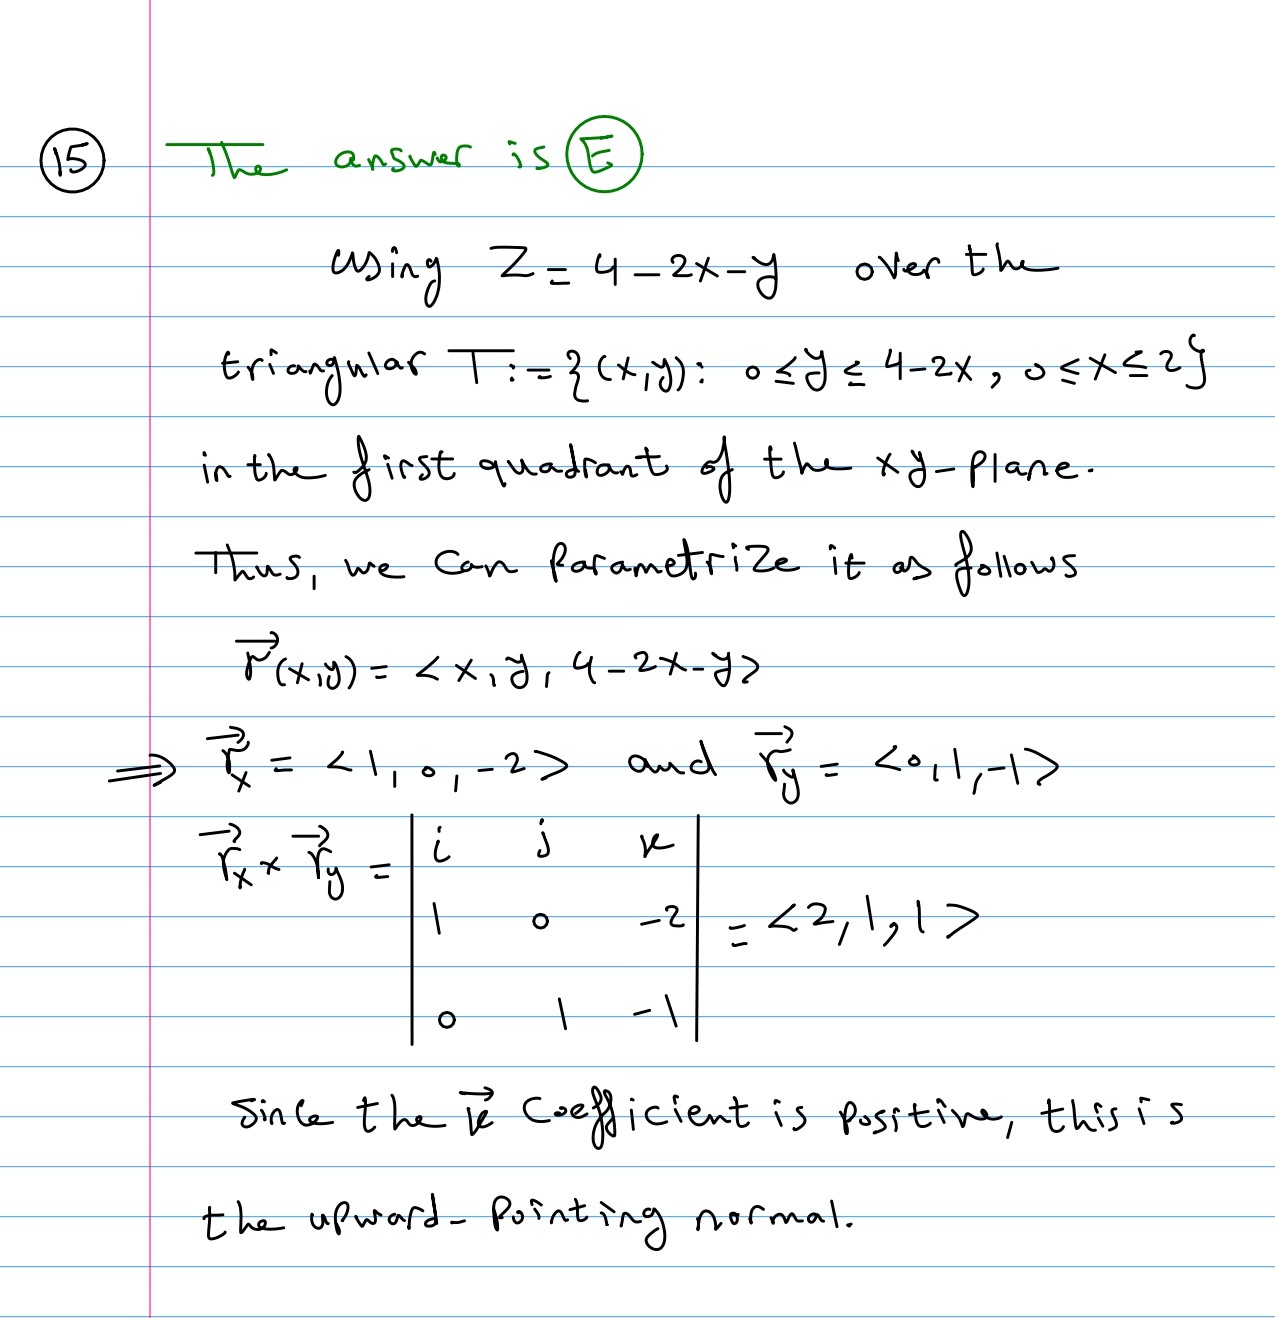 15 The answer is E
using Z = 4 - 2x - y over the
triangular T := {(x,y): 0 ≤ y ≤ 4-2x, 0 ≤ x ≤ 2}
in the first quadrant of the xy-plane.
Thus, we can parametrize it as follows
r⃗(x,y) = <x, y, 4-2x-y>
⟹ r⃗ₓ = <1, 0, -2> and r⃗_y = <0, 1, -1>
r⃗ₓ × r⃗_y = | i j k |
| 1 0 -2 | = <2, 1, 1>
| 0 1 -1 |
Since the k⃗ coefficient is positive, this is
the upward-pointing normal.